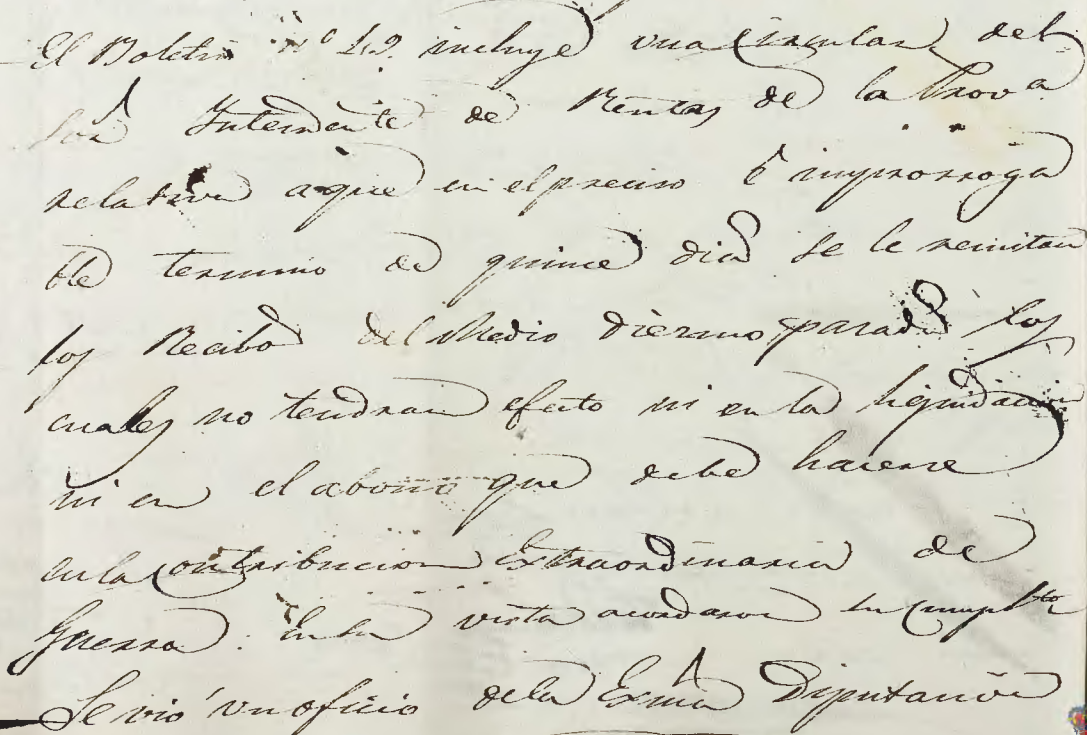 El Boletin nº 49. incluye una Circular del
Sor Intendente de Rentas de la Prova
relativa aque en el preciso é improrroga
ble termino de quince dias se le remitan
los Recibos del Medio Diezmo pasado los
cuales no tendran efecto ni en la liquidacion
ni en el abono que debe hacerse
en la Contribucion Extraordinaria de
Guerra. En su vista acordaron su Cumplto
Se vió un oficio de la Exma Diputacion